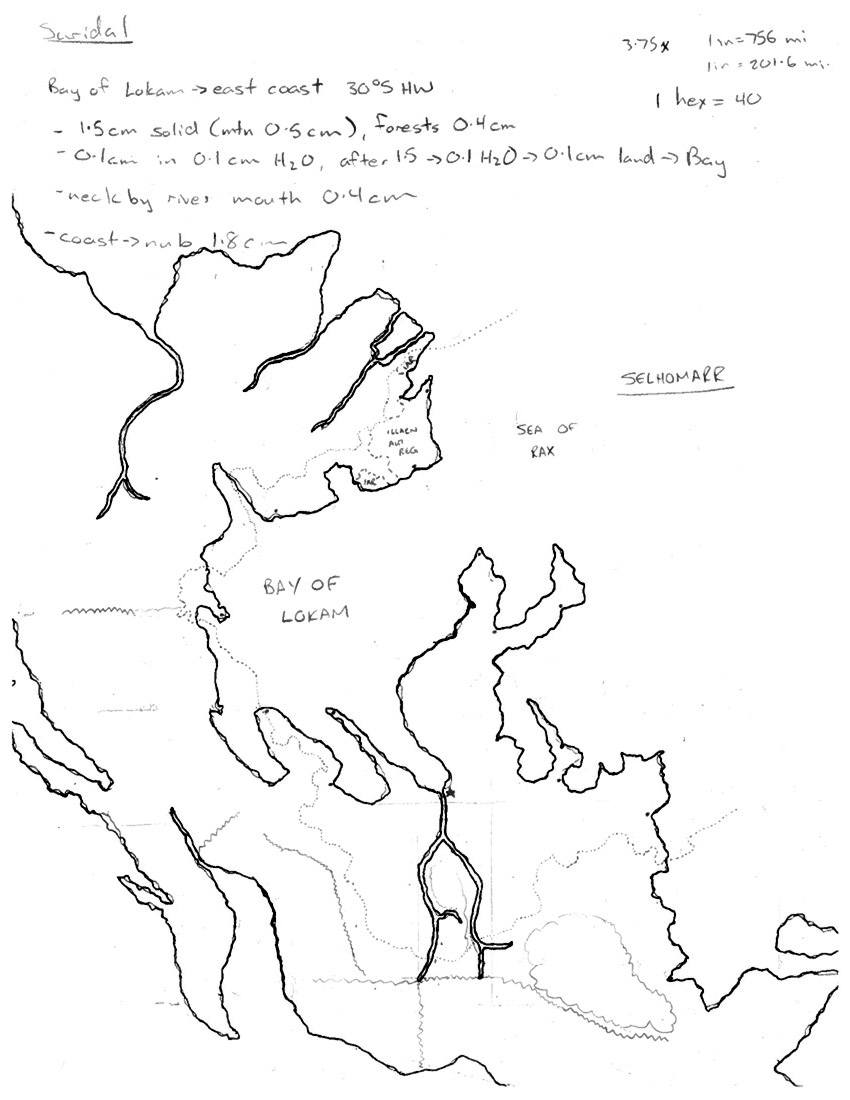 Suridal
3.75x 1in=756 mi
1in = 201.6 mi.
1 hex = 40
Bay of Lokam → east coast 30°S HW
- 1.5cm solid (mtn 0.5cm), forests 0.4cm
- 0.1cm in 0.1cm H2O, after 1.5 → 0.1 H2O → 0.1cm land → Bay
- neck by river mouth 0.4cm
- coast → nub 1.8cm
SELHOMARR
SEA OF
RAX
BAY OF
LOKAM